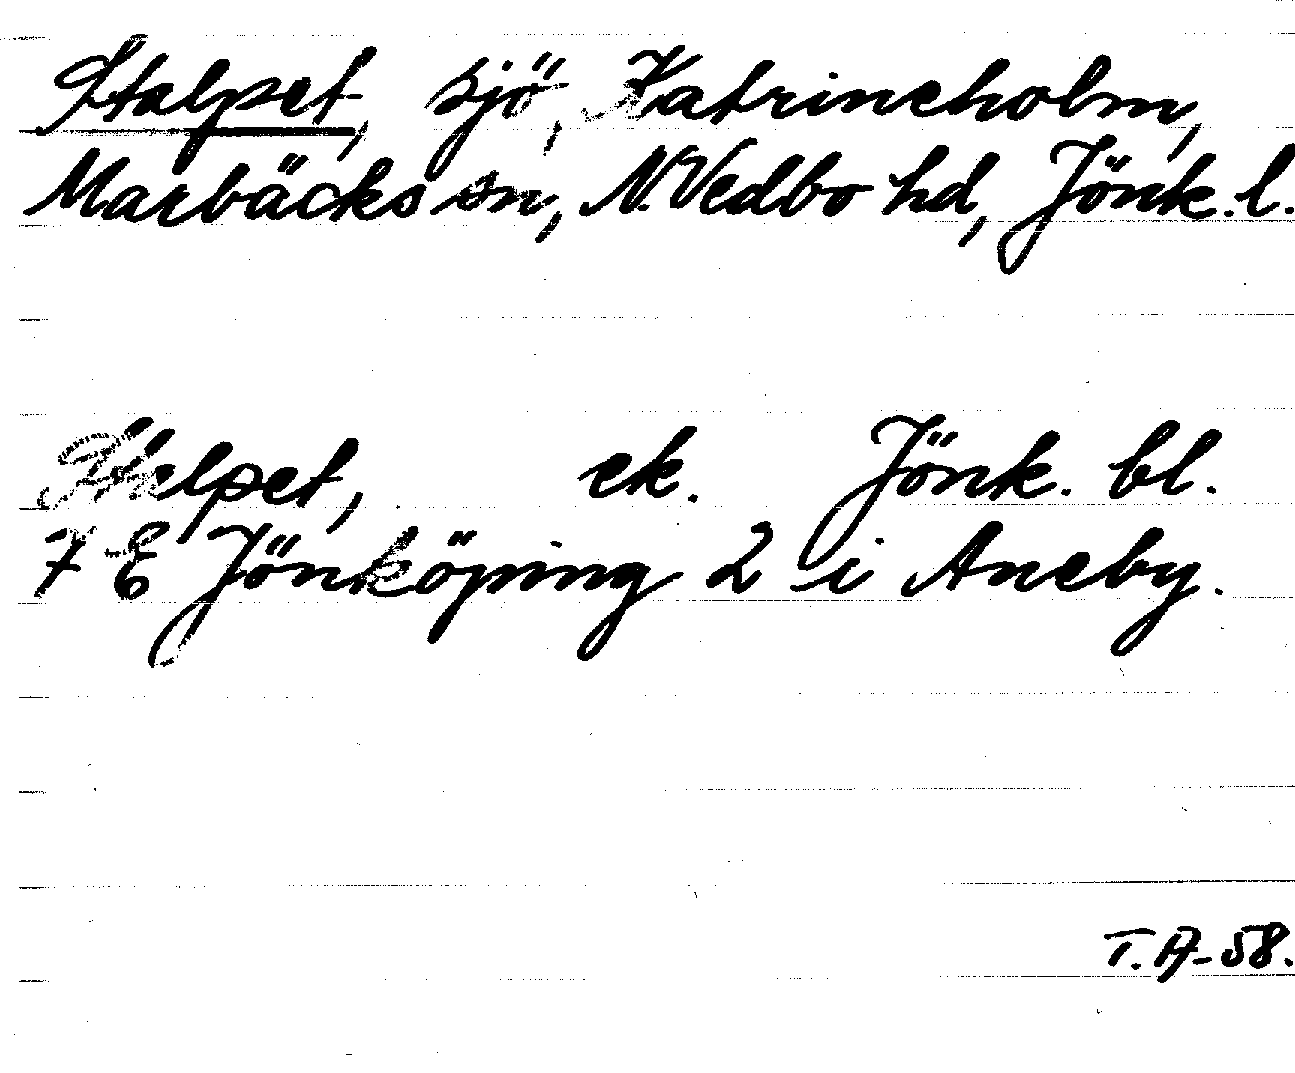 Stalpet, sjö, Katrineholm,
Marbäcks sn, N. Vedbo hd, Jönk. l.
Stalpet, ek. Jönk. bl.
7 E Jönköping 2 i Aneby.
T. A-58.